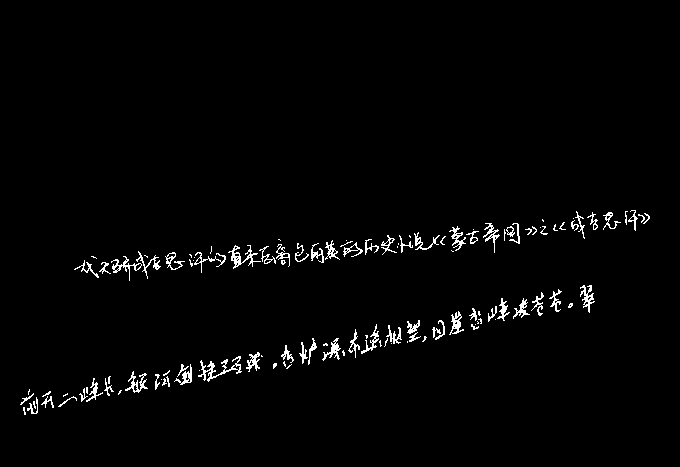 成吉思汗的直系后裔包丽英的历史小说《蒙古帝国》之《成吉思汗》
前开二峰长,银河倒挂三石梁。香炉瀑布遥相望,回崖沓嶂凌苍苍。翠